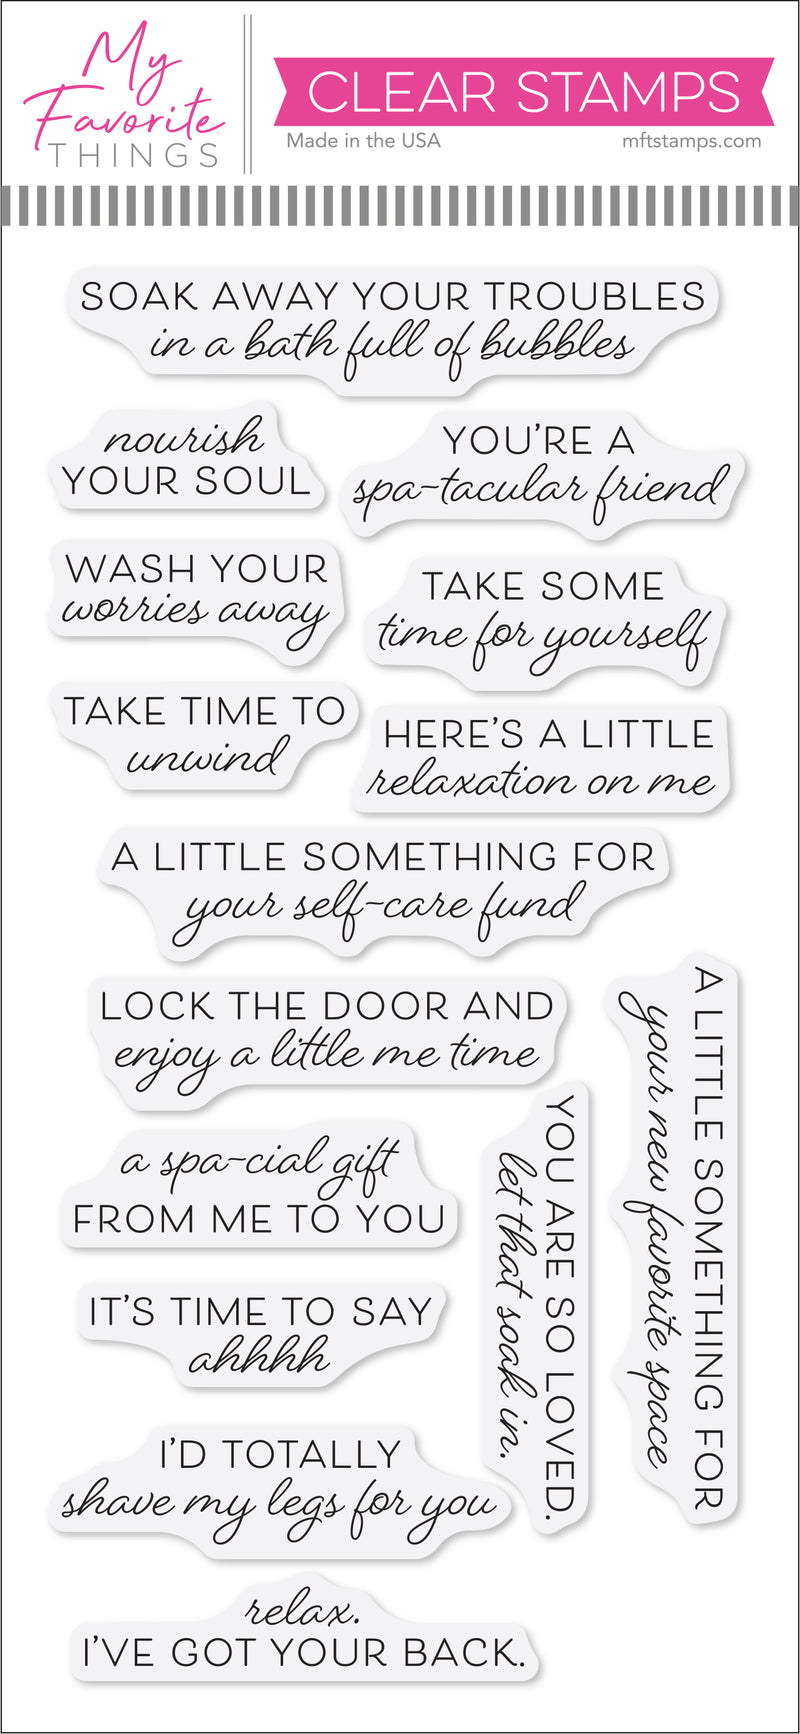 My
Favorite
THINGS
CLEAR STAMPS
Made in the USA
mftstamps.com
SOAK AWAY YOUR TROUBLES
in a bath full of bubbles
nourish
YOUR SOUL
YOU'RE A
spa-tacular friend
WASH YOUR
worries away
TAKE SOME
time for yourself
TAKE TIME TO
unwind
HERE'S A LITTLE
relaxation on me
A LITTLE SOMETHING FOR
your self-care fund
LOCK THE DOOR AND
enjoy a little me time
A LITTLE SOMETHING FOR
your new favorite space
YOU ARE SO LOVED.
let that soak in.
a spa-cial gift
FROM ME TO YOU
IT'S TIME TO SAY
ahhhh
I'D TOTALLY
shave my legs for you
relax.
I'VE GOT YOUR BACK.